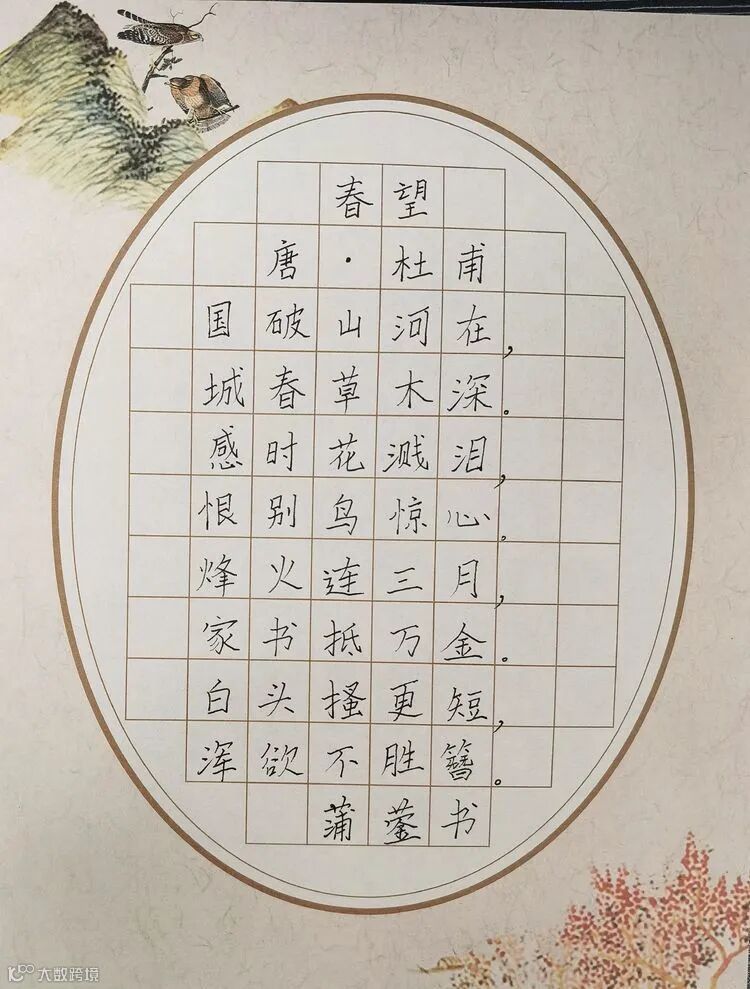 春望
唐·杜甫
国破山河在，
城春草木深。
感时花溅泪，
恨别鸟惊心。
烽火连三月，
家书抵万金。
白头搔更短，
浑欲不胜簪。
蒲蓥书
大数跨境